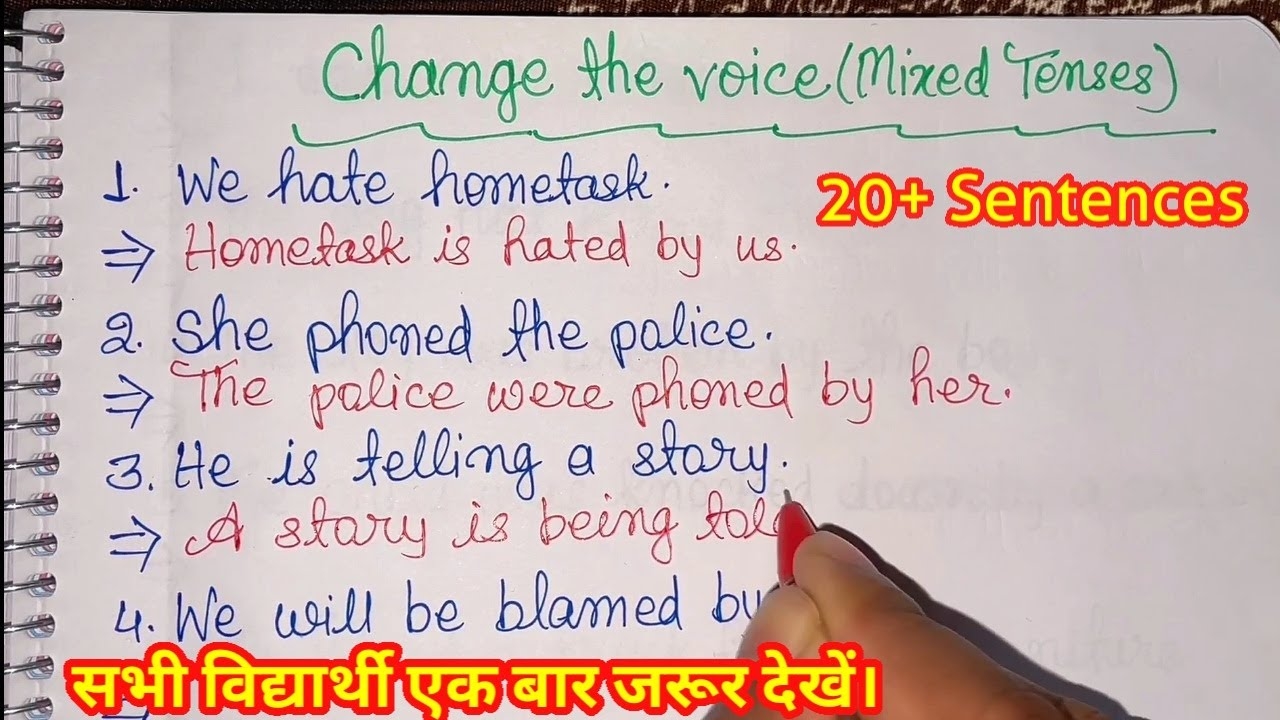 Change the voice (Mixed Tenses)
1. We hate hometask.
20+ Sentences
⇒ Hometask is hated by us.
2. She phoned the police.
⇒ The police were phoned by her.
3. He is telling a story.
⇒ A story is being
4. We will be blamed by
सभी विद्यार्थी एक बार जरूर देखें।